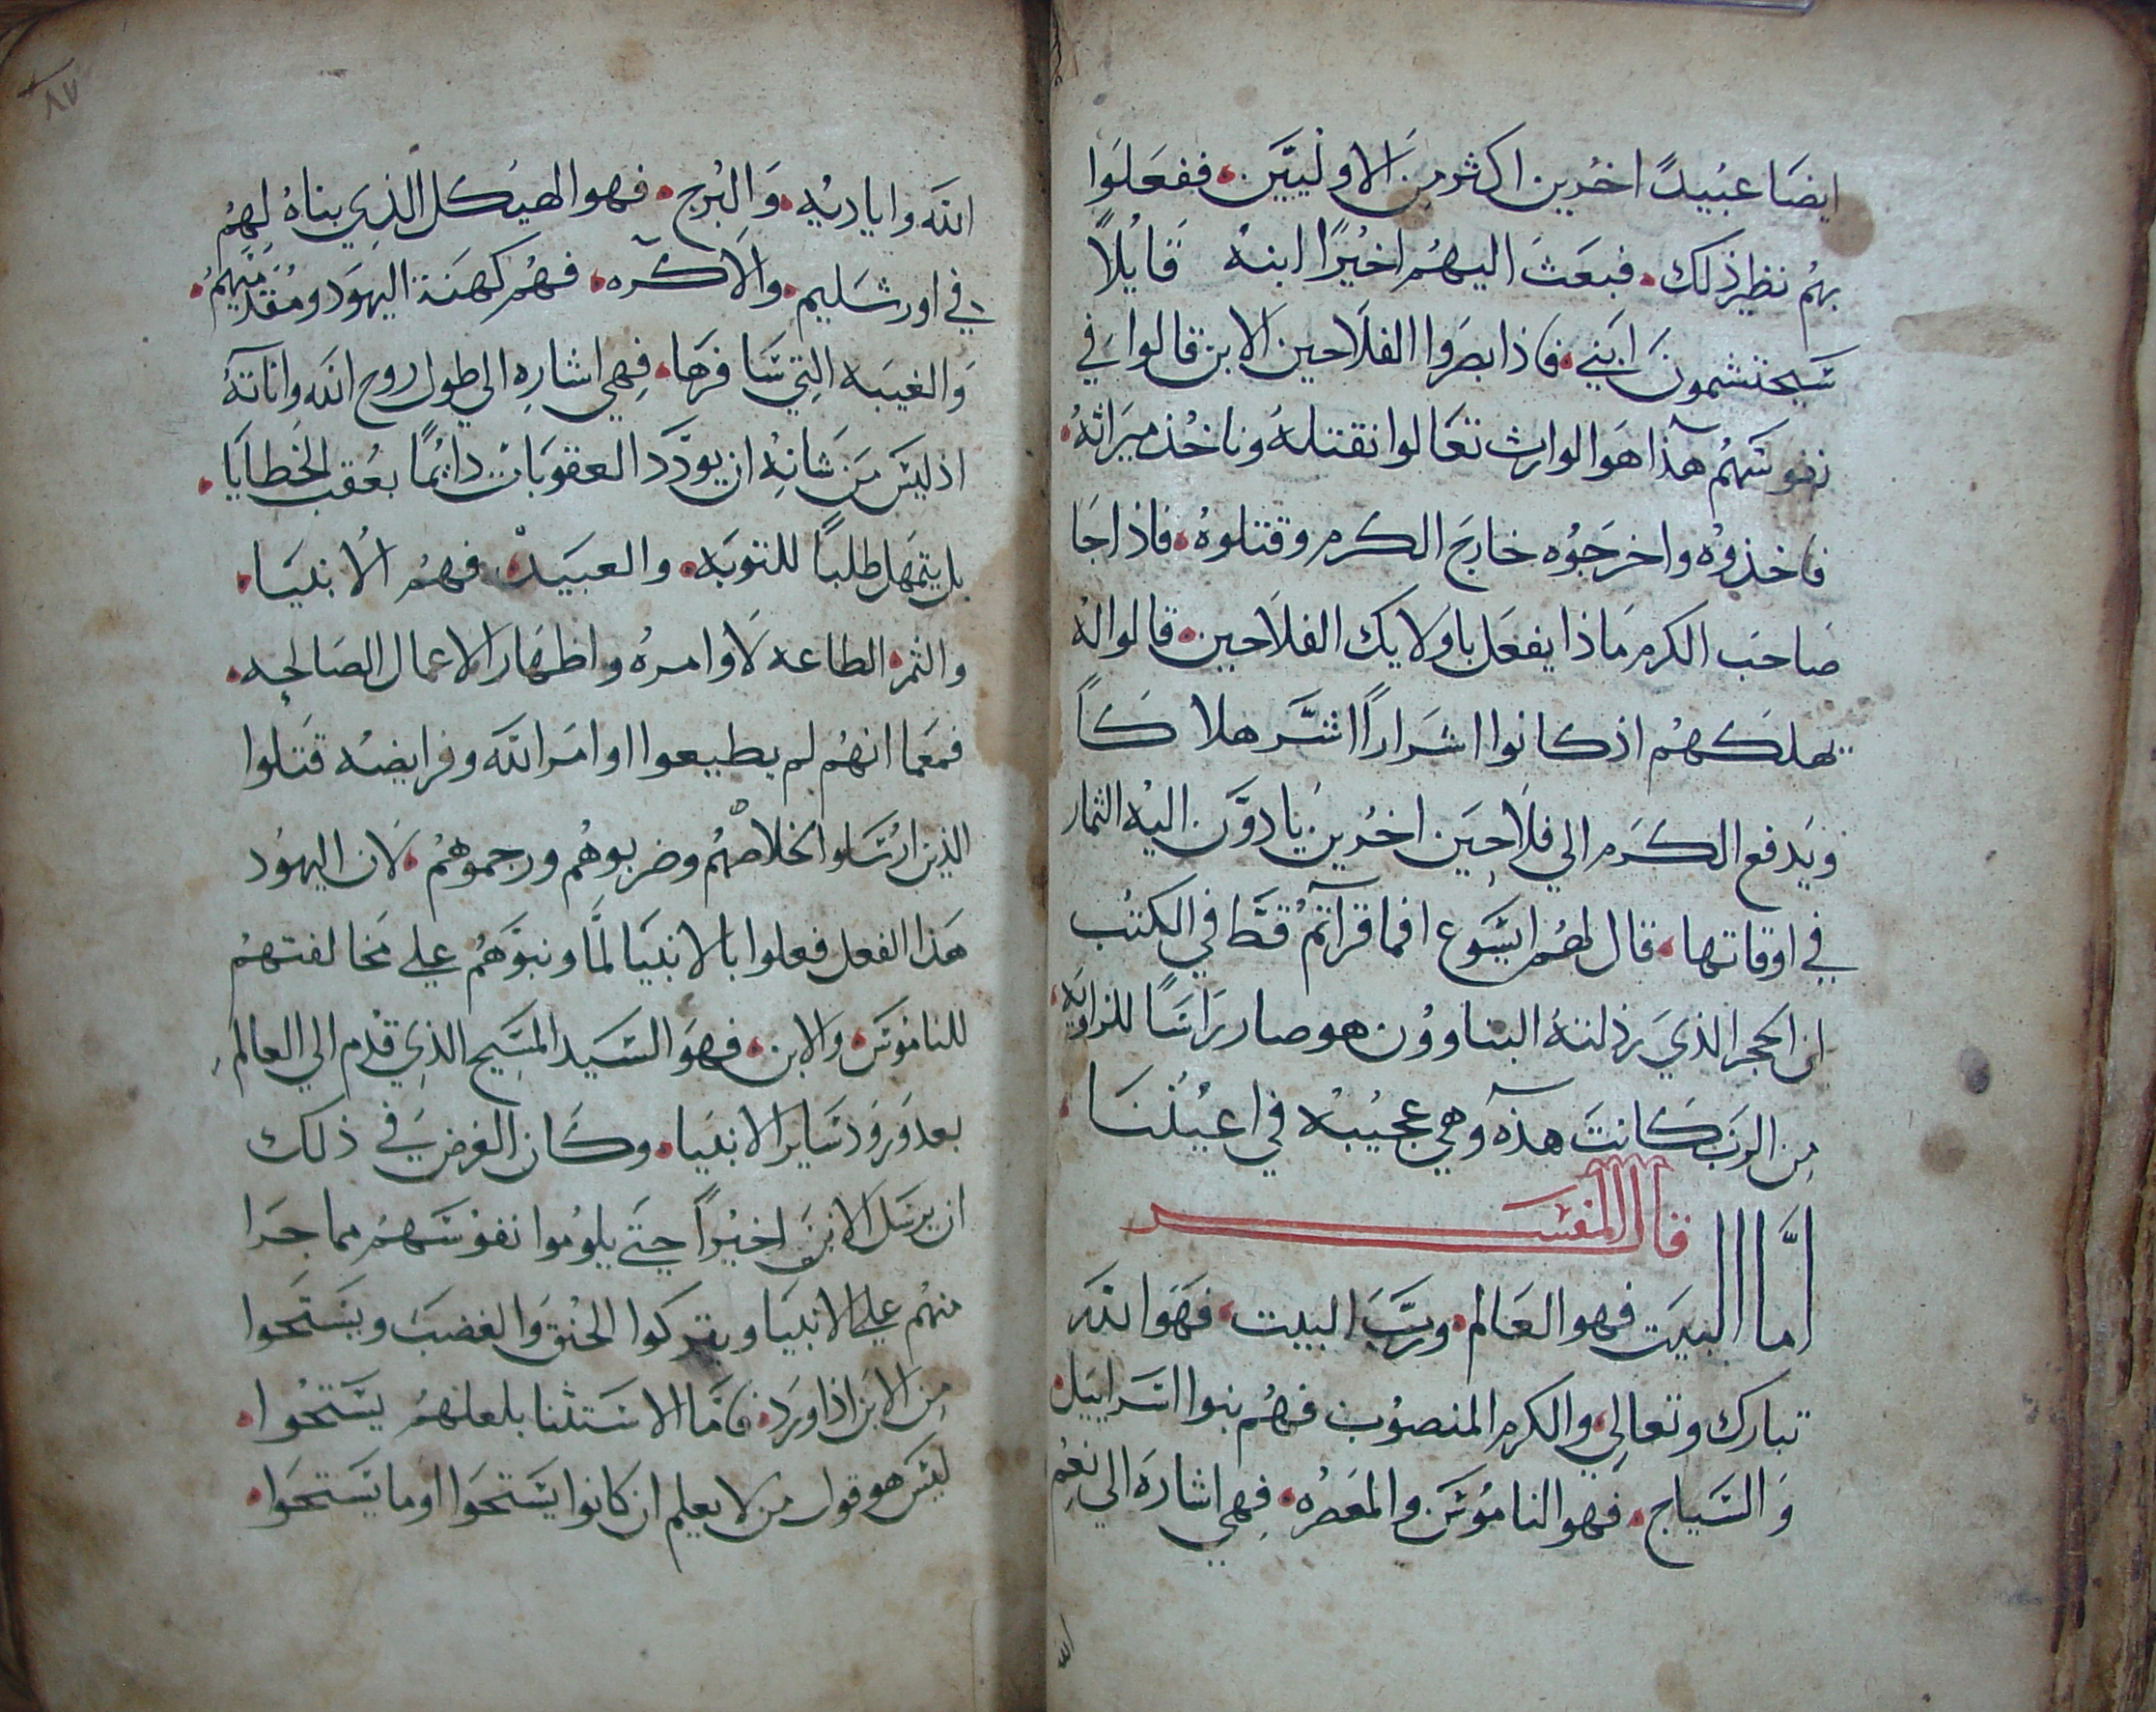 ايضا عبيدًا اخرين اكثر من الاوليين. ففعلوا
بهم نظير ذلك. فبعث اليهم اخيرًا ابنه قايلًا
سيحتشمون ابني. فاذا بصروا الفلاحين الابن قالوا في
نفوسهم هذا هو الوارث تعالوا نقتله وناخذ ميراثه.
فاخذوه واخرجوه خارج الكرم وقتلوه. فاذا جا
صاحب الكرم ماذا يفعل باولايك الفلاحين. قالوا له
يهلكهم اذ كانوا اشرارًا اشر هلاكًا
ويدفع الكرم الي فلاحين اخرين يادون اليه الثمار
في اوقاتها. قال لهم ايسوع افما قراتم قط في الكتب
ان الحجر الذي رذلته البناوون هو صار راسًا للزاويه.
من الرب كانت هذه وهي عجيبه في اعيننا.
قال المفسر
اما البيت فهو العالم. ورب البيت. فهو الله
تبارك وتعالي. والكرم المنصوب فهم بنوا اسراييل.
والسياج. فهو الناموس والمعصره. فهي اشاره الي نعم
٨٧
الله واياديه. والبرج. فهو الهيكل الذي بناه لهم
في اورشليم. والاكره. فهم كهنة اليهود ومقدميهم.
والغيبه التي سافرها. فهي اشاره الي طول روح الله واناته
اذ ليس من شانه ان يورد العقوبات دايمًا بعقب الخطايا.
بل يتمهل طلبًا للتوبه. والعبيد. فهم الانبيا.
والثمر. الطاعه لاوامره واظهار الاعمال الصالحه.
فمعما انهم لم يطيعوا اوامر الله وفرايضه قتلوا
الذين ارسلوا لخلاصهم وضربوهم ورجموهم. لان اليهود
هذا الفعل فعلوا بالانبيا لما ونبوهم علي مخالفتهم
للناموس. والابن. فهو السيد المسيح الذي قدم الي العالم
بعد ورود ساير الانبيا. وكان الغرض في ذلك
ان يرسل الابن اخيرًا حتي يلوموا نفوسهم مما جرا
منهم علي الانبيا ويتركوا الحنق والغضب ويستحوا
من الابن اذا ورد. فاما الاستثنا بلعلهم يستحوا.
ليس هو قول من لا يعلم ان كانوا يستحوا او ما يستحوا.